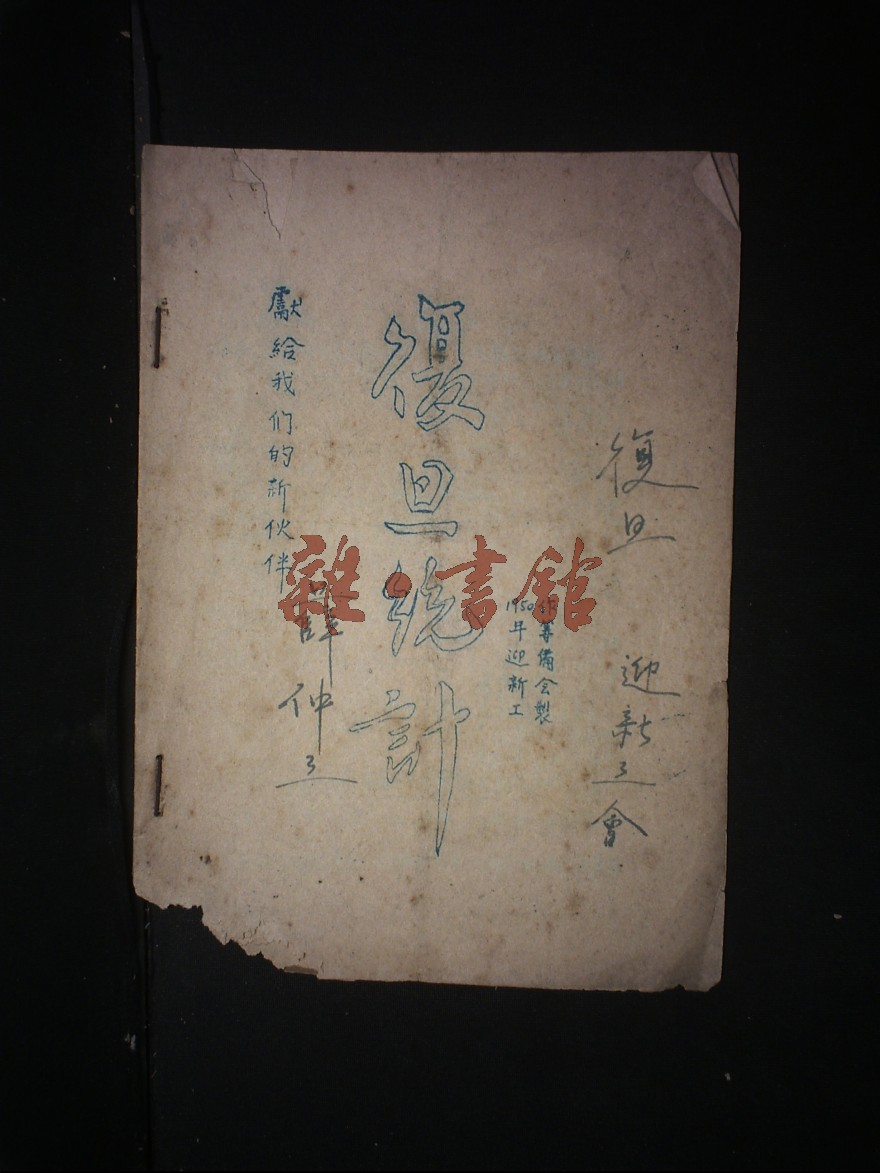 復旦 迎新工會
1950年迎新工
籌備会製
復旦統計
獻給我们的新伙伴
薛仲三
雜·書館